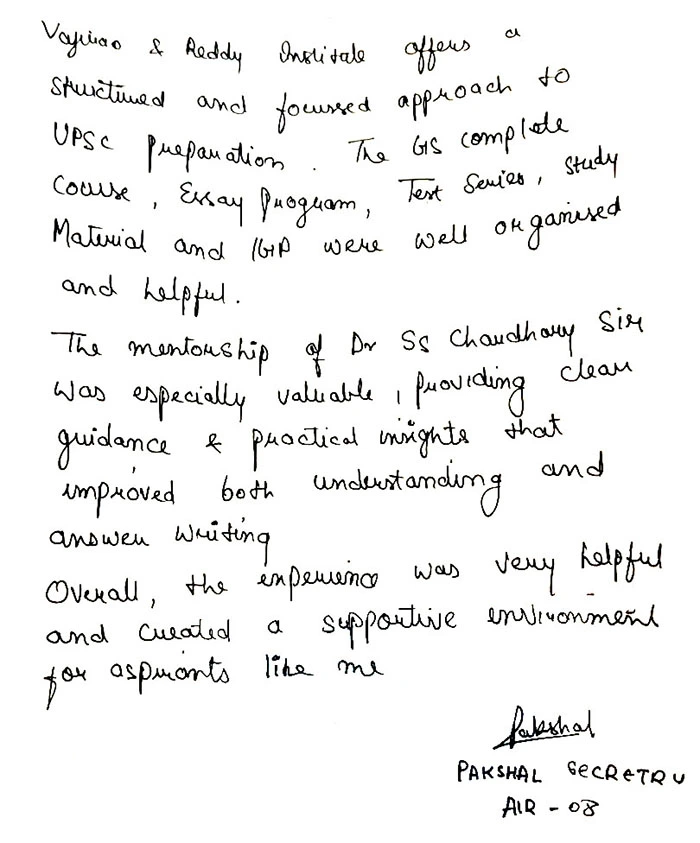 Vajirao & Reddy Institute offers a
structured and focussed approach to
UPSC preparation. The GS complete
Course, Essay Program, Test Series, Study
Material and IGP were well organised
and helpful.
The mentorship of Dr SS Chaudhary Sir
was especially valuable, providing clear
guidance & practical insights that
improved both understanding and
answer writing
Overall, the experience was very helpful
and created a supportive environment
for aspirants like me
Pakshal
PAKSHAL SECRETRY
AIR - 08